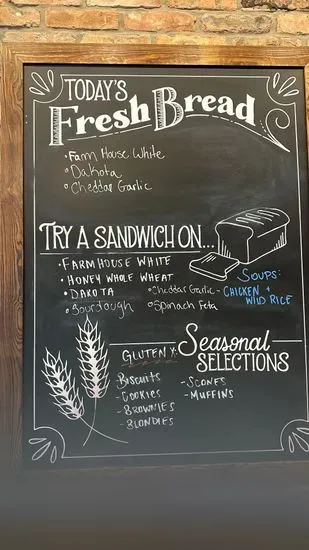 TODAY'S
Fresh Bread
• Farm House White
• Dakota
• Cheddar Garlic
TRY A SANDWICH ON...
• FARMHOUSE WHITE
• HONEY WHOLE WHEAT
• DAKOTA • Cheddar Garlic
• Sourdough • Spinach Feta
SOUPS:
- CHICKEN +
WILD RICE
Seasonal
SELECTIONS
GLUTEN Y:
Biscuits - SCONES
- COOKIES - MUFFINS
- BROWNIES
- BLONDIES